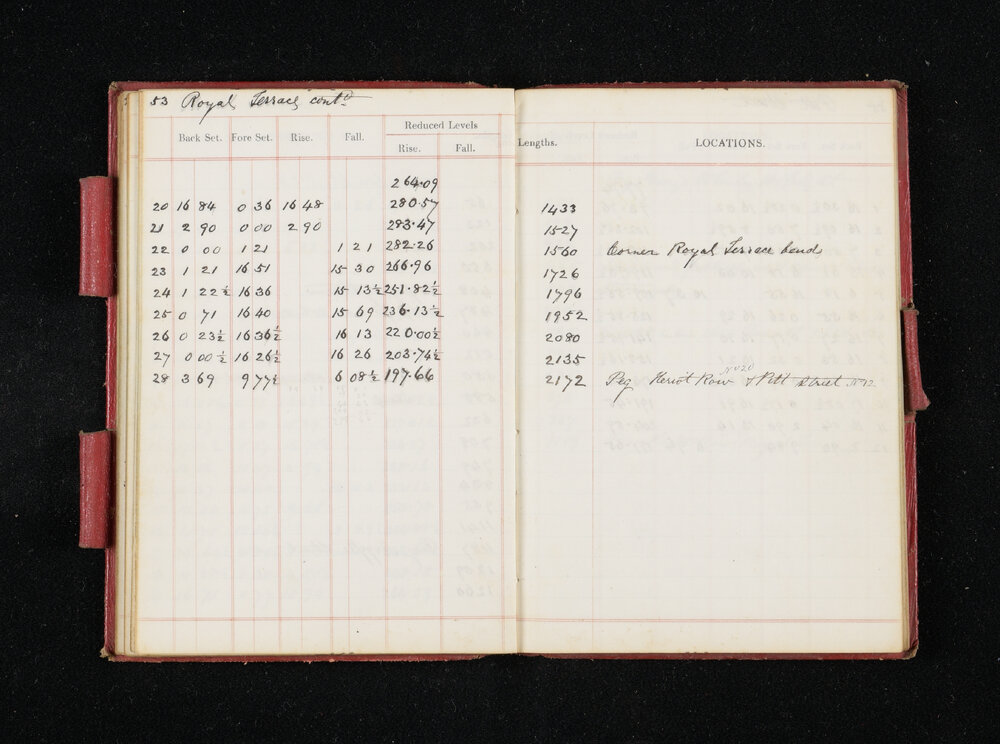 53 Royal Terrace contd
Back Set. Fore Set. Rise. Fall. Reduced Levels Rise. Fall. Lengths. LOCATIONS.
264.09
20 16 84 0 36 16 48 280.57 1433
21 2 90 0 00 2 90 283.47 1527
22 0 00 1 21 1 21 282.26 1560 Corner Royal Terrace bend
23 1 21 16 51 15 30 266.96 1726
24 1 22½ 16 36 15 13½ 251.82½ 1796
25 0 71 16 40 15 69 236.13½ 1952
26 0 23½ 16 36½ 16 13 220.00½ 2080
27 0 00½ 16 26½ 16 26 203.74½ 2135
28 3 69 9 77½ 6 08½ 197.66 2172 Peg Heriot Row No 20 & Pitt Street No 12